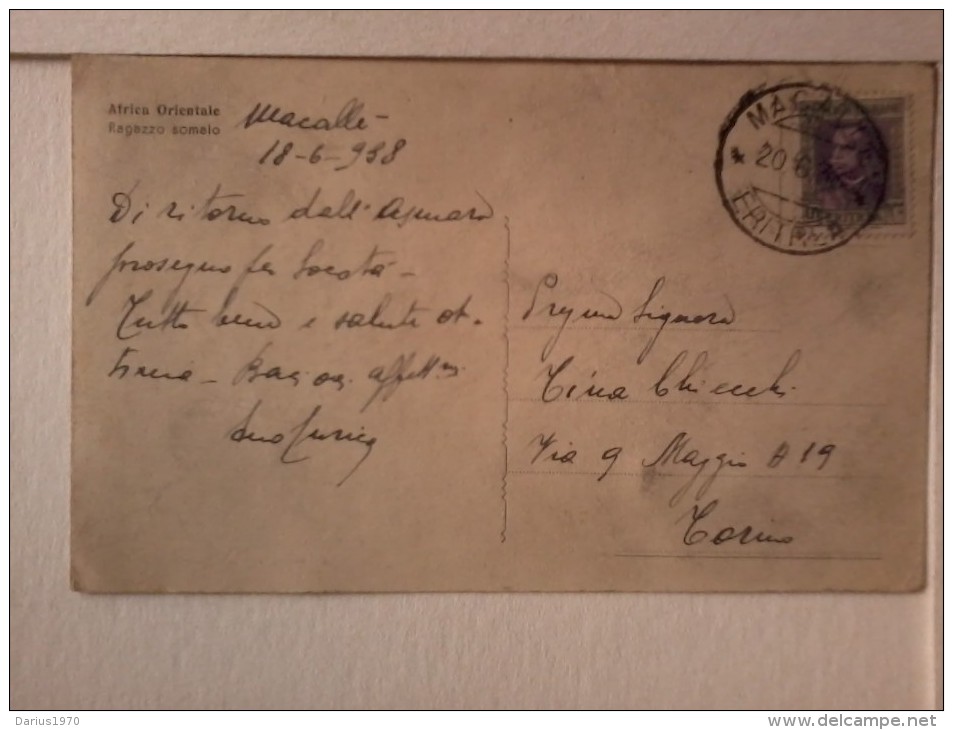 Africa Orientale
Ragazzo somalo
Macallè -
18-6-938
Di ritorno dall'Asmara
proseguo per Socotà -
Tutto bene e salute ot-
tima - Bacioni affett.mi
MACALLE
20.6
ERITREA
Signora
Tina Chiecchi
Via 9 Maggio 19
Torino
Darius1970
www.delcampe.net